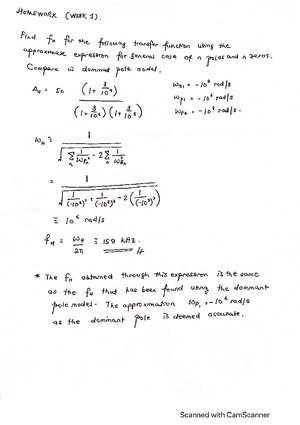 HOMEWORK (WEEK 5).
Find fH for the following transfer function using the
approximate expression for general case of n poles and n zeros.
Compare w dommed pole model.
AH = 50 (1 + s/10⁸) / (1 + s/10⁶)(1 + s/10⁸)
ωz1 = -10⁸ rad/s
ωp1 = -10⁶ rad/s
ωp2 = -10⁸ rad/s.
ωH ≈ 1 / √(Σn 1/ωPn² - 2 Σn 1/ωZn²)
= 1 / √(1/(-10⁶)² + 1/(-10⁸)² - 2 (1/(-10⁸)²))
≅ 10⁶ rad/s
fH = ωH/2π ≅ 159 kHz.
* The fH obtained through this expression is the same
as the fH that has been found using the dominant
pole model. The approximation ωP1 = -10⁶ rad/s
as the dominant pole is deemed accurate.
Scanned with CamScanner